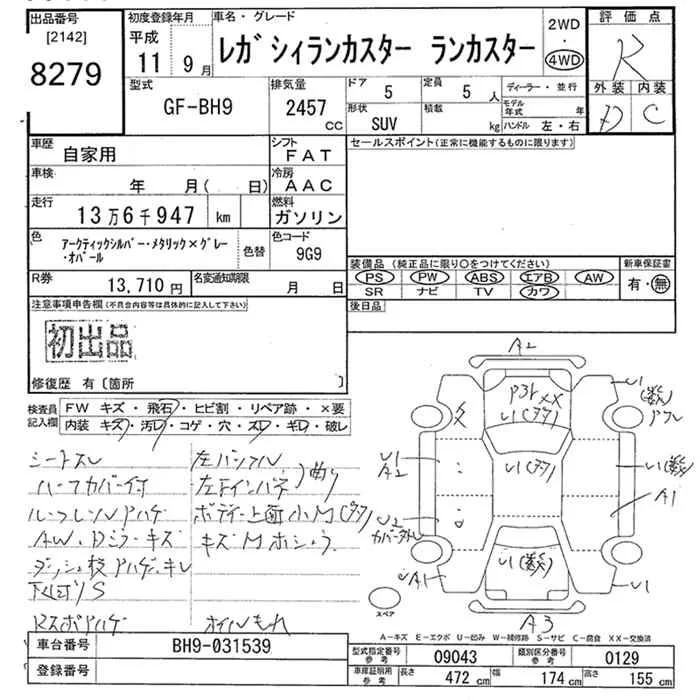 出品番号
[2142]
8279
初度登録年月
平成
11 9月
車名・グレード
レガシィランカスター ランカスター
2WD
・
4WD
評価点
R
外装 内装
D C
型式
GF-BH9
排気量
2457
CC
ドア
5
定員
5 人
形状
SUV
積載
kg
ディーラー・並行
モデル年式 年
ハンドル 左・右
車歴
自家用
シフト
FAT
セールスポイント(正常に機能するものに限ります)
車検
年 月( 日)
冷房
AAC
走行
13万6千947 km
燃料
ガソリン
色
アークティックシルバー・メタリック×グレー
・オパール
色替
色コード
9G9
装備品(純正品に限り○をつけてください)
PS PW ABS エアB AW
SR ナビ TV カワ
新車保証書
有・無
R券
13,710円
名変通知期限
月 日
後日品
注意事項申告欄(不具合内容等は具体的に記入して下さい)
初出品
修復歴 有〔箇所 〕
検査員
記入欄
FW キズ・飛石・ヒビ割・リペア跡・×要
内装 キズ・汚レ・コゲ・穴・スレ・ギレ・破レ
シートスレ
ハーフカバー付
ルーフレンソアハゲ
AW、Dミラーキズ
ダッシュ枝アハゲ、キレ
下回りS
Rスポアハゲ
左バンフル
左Fインパネ)曲り
ボディー上面小M(多タ)
キズMホシュウ
オイルもれ
A2
P31
XX
U1(多タ)
U1
(数)
アフレ
U1
A2
U1(多タ)
U1(数)
A1
U2
カバー外レ
U1(数)
A1
U1
A3
スペア
A-キズ E-エクボ U-凹み W-補修跡 S-サビ C-腐食 XX-交換済
車台番号
BH9-031539
登録番号
型式指定番号
参考
09043
類別区分番号
参考
0129
車庫証明用
参考
長さ
472 cm
幅
174 cm
高さ
155 cm